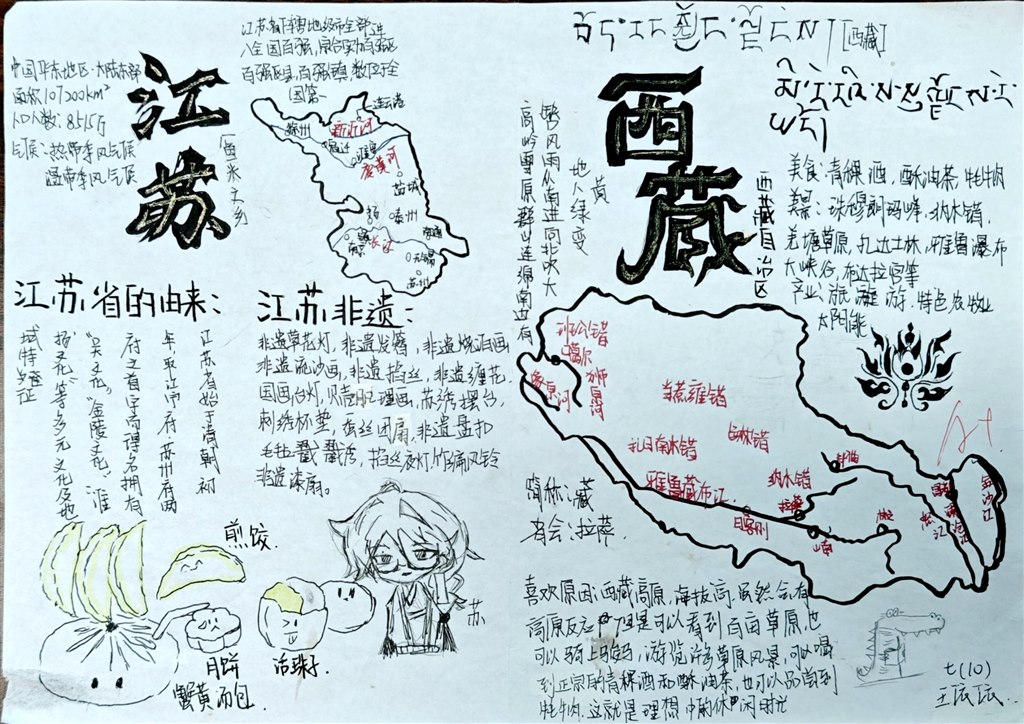 江苏
中国华东地区·大陆东部
面积107200km²
人口人数：8515万
气候：热带季风气候
温带季风气候
鱼米之乡
江苏省下辖地级市全部进
入全国百强，综合实力百强区
百强区县，百强镇，数位于全
国第一
连云港
徐州
新沂河
宿迁
淮安
废黄河
盐城
扬
泰州
南京
长江
南通
无锡
苏州
江苏省的由来：
江苏省始于清朝初
年，取江宁府、苏州府两
府之首字而得名，拥有
“吴文化”“金陵文化”“淮
扬文化”等多元文化及地
域特征
江苏非遗：
非遗草花灯，非遗发簪，非遗烧酒画
非遗流沙画，非遗掐丝，非遗缠花，
团圆台灯，贝壳肌理画，苏绣摆台，
刺绣杯垫，蚕丝团扇，非遗盘扣
毛毡戳戳秀，掐丝夜灯，竹编风铃
非遗漆扇。
煎饺
月饼
活珠子
蟹黄面包
苏
[西藏]
西藏
西藏自治区
黄
地人绿变
携风雨从南进向北吹大
高岭雪原群山连绵南边有
美食：青稞酒，酥油茶，牦牛肉
美景：珠穆朗玛峰，纳木错，
羌塘草原，扎达土林，雅鲁瀑布
大峡谷，布达拉宫等
产业：旅游，特色农牧业
太阳能
班公错
噶尔
象泉河
狮泉河
当惹雍错
扎日南木错
色林错
纳木错
雅鲁藏布江
日喀则
拉萨
山南
林芝
昌都
怒江
澜沧江
金沙江
A+
简称：藏
省会：拉萨
喜欢原因：西藏高原，海拔高，虽然会有
高原反应，但是可以看到百亩草原，也
可以骑上马，游览许多草原风景，可以喝
到正宗的青稞酒和酥油茶，也可以品尝到
牦牛肉，这就是理想中的休闲时光
七(10)